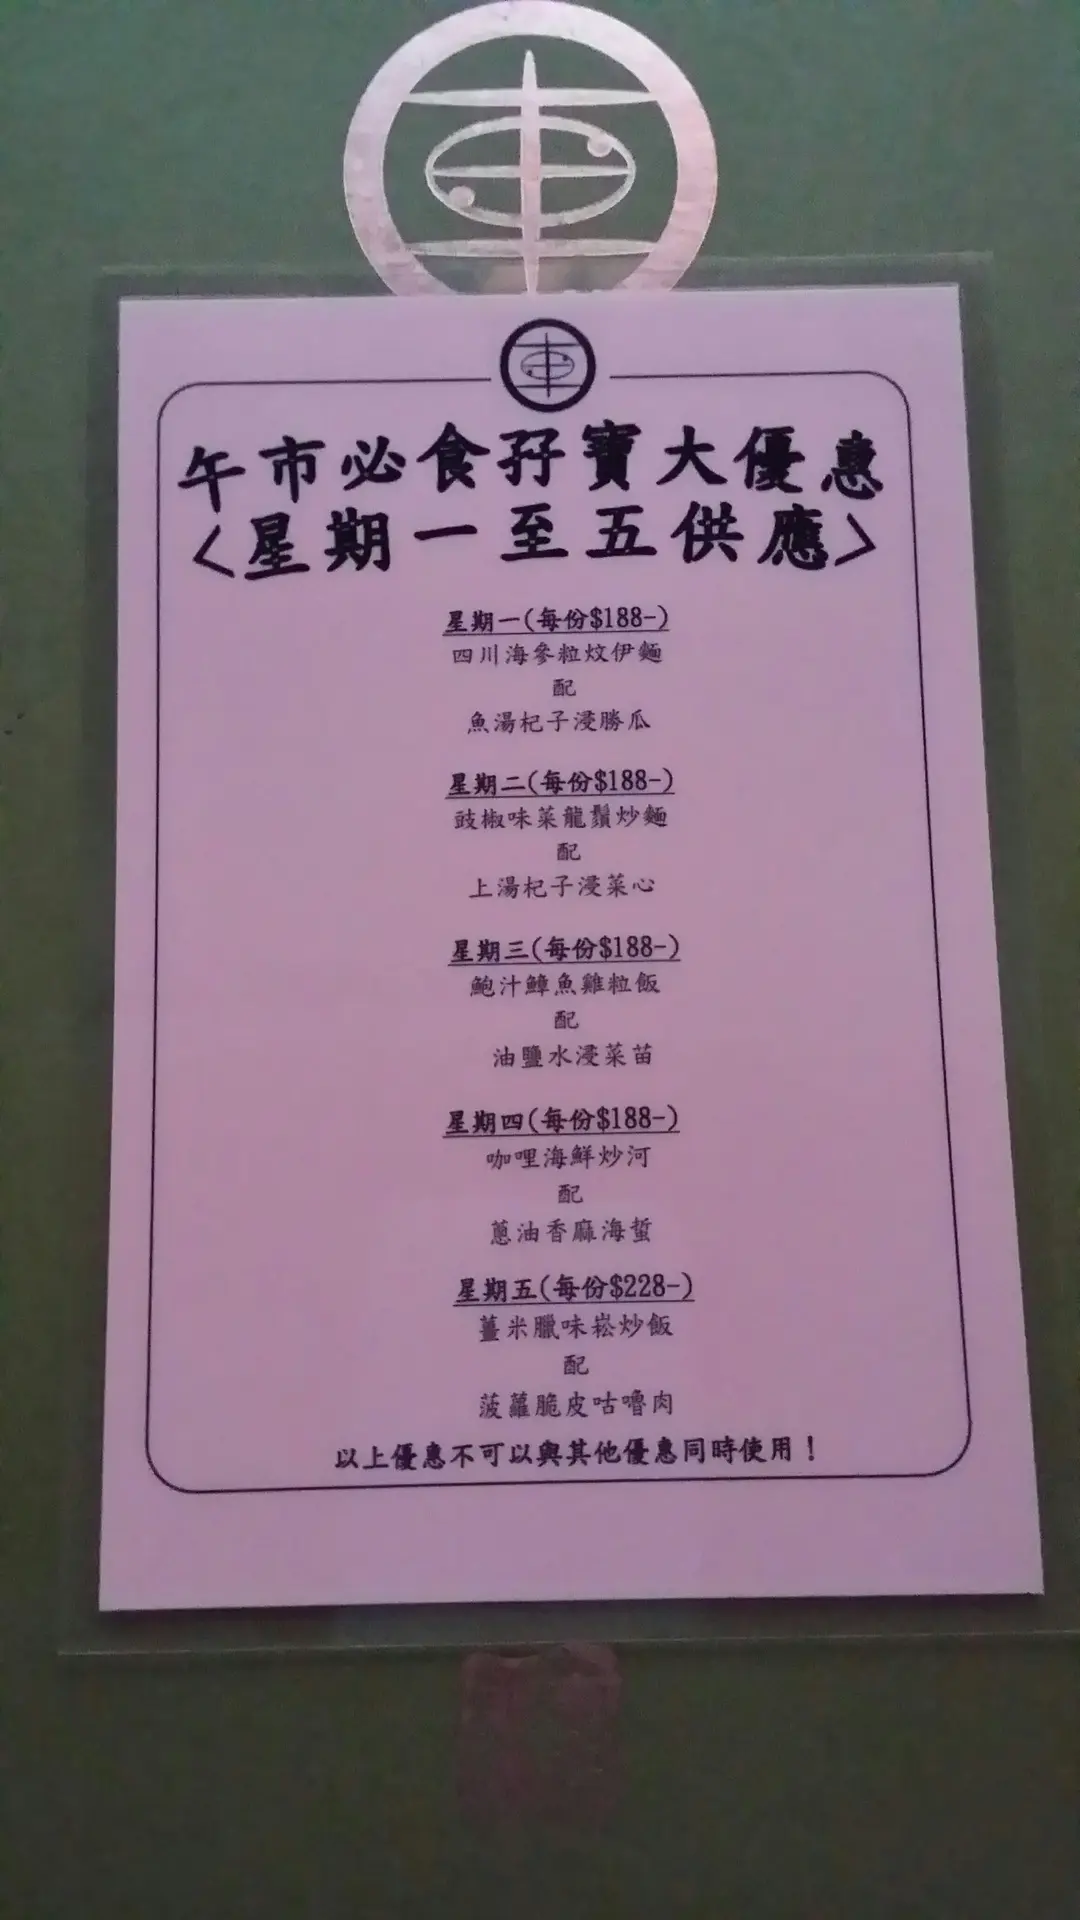 午市必食孖寶大優惠
<星期一至五供應>
星期一(每份$188-)
四川海參粒炆伊麵
配
魚湯杞子浸勝瓜
星期二(每份$188-)
豉椒味菜龍鬚炒麵
配
上湯杞子浸菜心
星期三(每份$188-)
鮑汁鱆魚雞粒飯
配
油鹽水浸菜苗
星期四(每份$188-)
咖哩海鮮炒河
配
蔥油香麻海蜇
星期五(每份$228-)
薑米臘味崧炒飯
配
菠蘿脆皮咕嚕肉
以上優惠不可以與其他優惠同時使用！